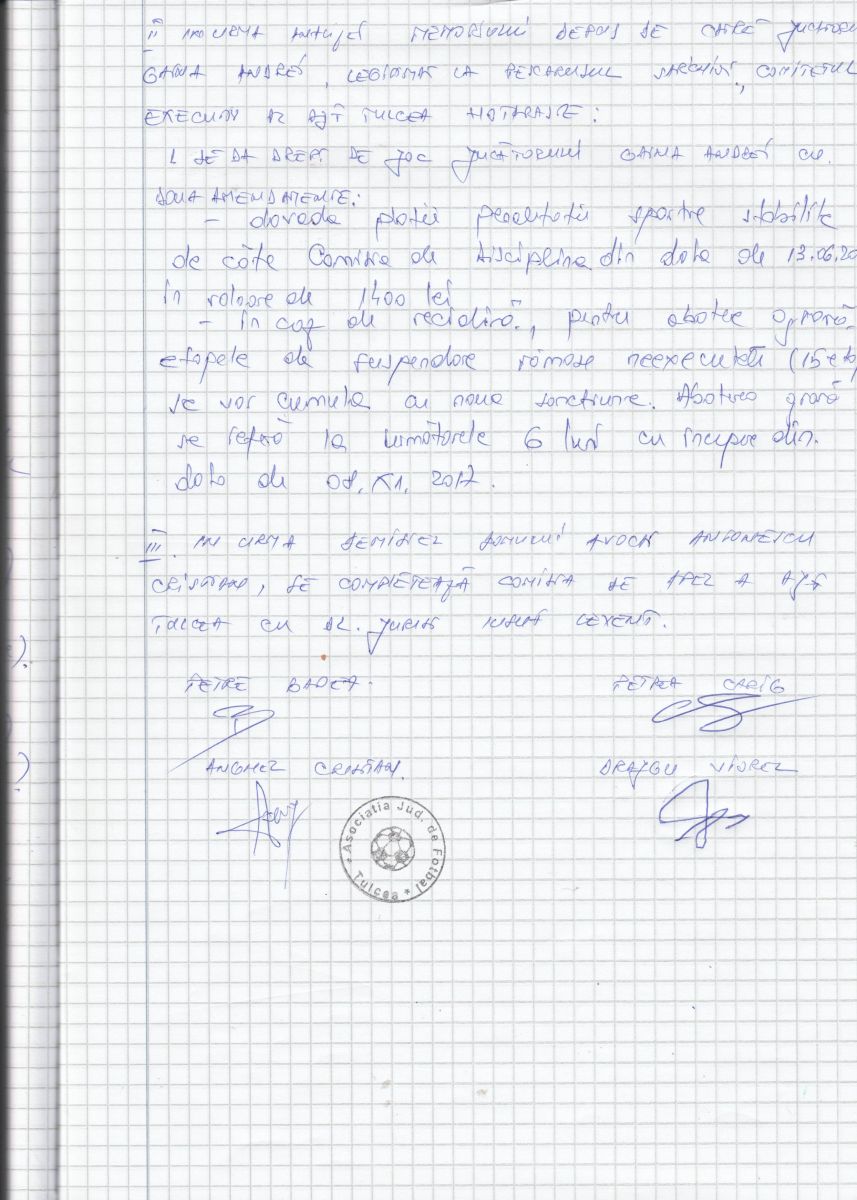 II ÎN URMA ANALIZEI MEMORIULUI DEPUS DE CĂTRE
GAINA ANDREI, LEGITIMAT LA PESCARUSUL SARICHIOI, COMITETUL
EXECUTIV AL AJF TULCEA HOTARASTE:
1. SE DA DREPT DE JOC JUCĂTORULUI GAINA ANDREI CU
DOUA AMENDAMENTE:
- dovada platii penalitatii sportive stabilite
de către Comisia de Disciplina din data de 13.06.20
în valoare de 1400 lei
- în caz de recidivă, pentru abatere gravă,
etapele de suspendare rămase neexecutate (15
se vor cumula cu noua sanctiune. Abaterea gravă
se referă la următoarele 6 luni cu începere din
data de 08.XI.2017.
III. IN URMA DEMISIEI DOMNULUI AVOCAT ANTONESCU
CRISTIAN, SE COMPLETEAZĂ COMISIA DE APEL A AJF
TULCEA CU DL. JURIST LEVENT.
PETRE BADEA
PETREA
ANGHEL CRISTIAN.
VIOREL
Asociatia Jud. de Fotbal
* Tulcea *